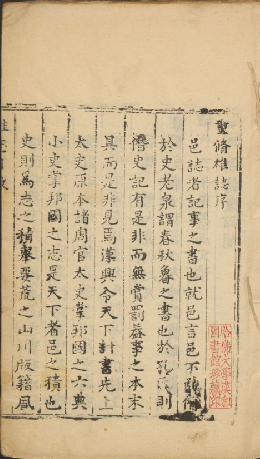 重脩雄誌序
邑誌者記事之書也就邑言邑不
於史老泉謂春秋魯之書也於則
僭史記有是非而無賞罰蓋事之本末
具而是非見焉漢興令天下計書先上
太史原本諸周官太史掌邦國之六典
小史掌邦國之志是天下者邑之積也
史則爲志之積舉要荒之山川版籍風
哈佛大學漢和
圖書館珍藏印